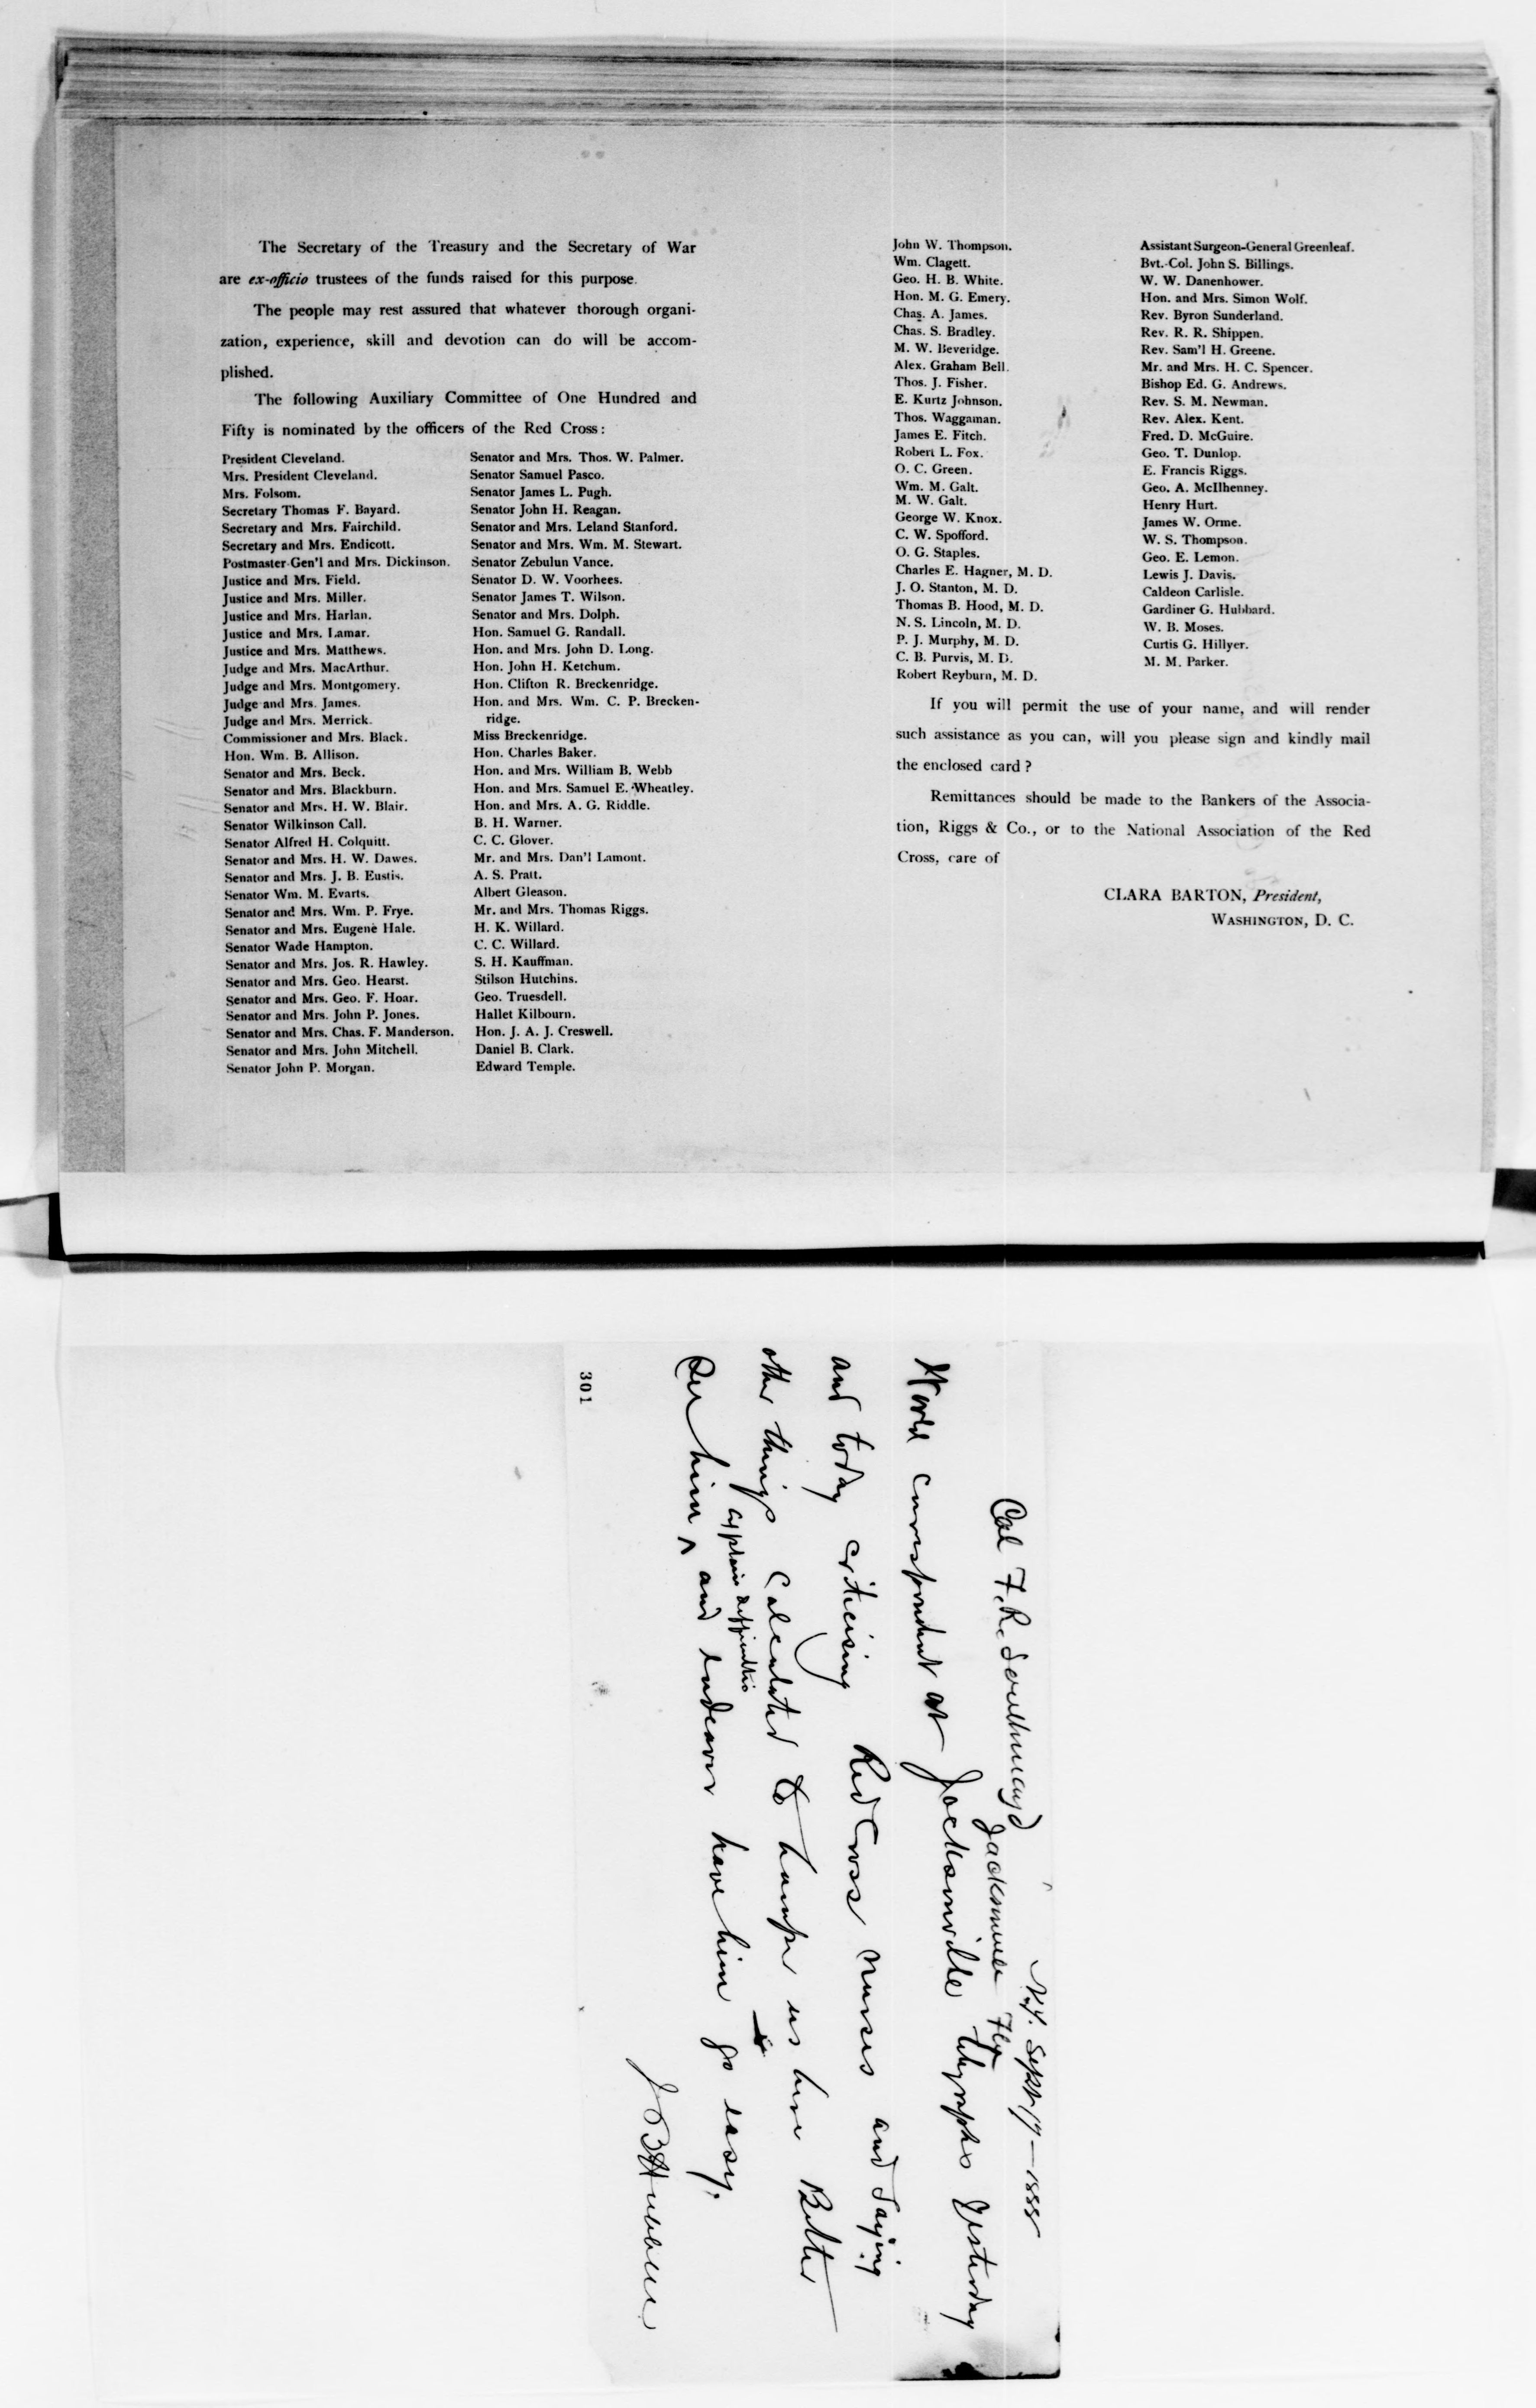 The Secretary of the Treasury and the Secretary of War
are ex-officio trustees of the funds raised for this purpose.
The people may rest assured that whatever thorough organi-
zation, experience, skill and devotion can do will be accom-
plished.
The following Auxiliary Committee of One Hundred and
Fifty is nominated by the officers of the Red Cross:
President Cleveland.
Mrs. President Cleveland.
Mrs. Folsom.
Secretary Thomas F. Bayard.
Secretary and Mrs. Fairchild.
Secretary and Mrs. Endicott.
Postmaster-Gen'l and Mrs. Dickinson.
Justice and Mrs. Field.
Justice and Mrs. Miller.
Justice and Mrs. Harlan.
Justice and Mrs. Lamar.
Justice and Mrs. Matthews.
Judge and Mrs. MacArthur.
Judge and Mrs. Montgomery.
Judge and Mrs. James.
Judge and Mrs. Merrick.
Commissioner and Mrs. Black.
Hon. Wm. B. Allison.
Senator and Mrs. Beck.
Senator and Mrs. Blackburn.
Senator and Mrs. H. W. Blair.
Senator Wilkinson Call.
Senator Alfred H. Colquitt.
Senator and Mrs. H. W. Dawes.
Senator and Mrs. J. B. Eustis.
Senator Wm. M. Evarts.
Senator and Mrs. Wm. P. Frye.
Senator and Mrs. Eugene Hale.
Senator Wade Hampton.
Senator and Mrs. Jos. R. Hawley.
Senator and Mrs. Geo. Hearst.
Senator and Mrs. Geo. F. Hoar.
Senator and Mrs. John P. Jones.
Senator and Mrs. Chas. F. Manderson.
Senator and Mrs. John Mitchell.
Senator John P. Morgan.
Senator and Mrs. Thos. W. Palmer.
Senator Samuel Pasco.
Senator James L. Pugh.
Senator John H. Reagan.
Senator and Mrs. Leland Stanford.
Senator and Mrs. Wm. M. Stewart.
Senator Zebulun Vance.
Senator D. W. Voorhees.
Senator James T. Wilson.
Senator and Mrs. Dolph.
Hon. Samuel G. Randall.
Hon. and Mrs. John D. Long.
Hon. John H. Ketchum.
Hon. Clifton R. Breckenridge.
Hon. and Mrs. Wm. C. P. Brecken-
ridge.
Miss Breckenridge.
Hon. Charles Baker.
Hon. and Mrs. William B. Webb
Hon. and Mrs. Samuel E. Wheatley.
Hon. and Mrs. A. G. Riddle.
B. H. Warner.
C. C. Glover.
Mr. and Mrs. Dan'l Lamont.
A. S. Pratt.
Albert Gleason.
Mr. and Mrs. Thomas Riggs.
H. K. Willard.
C. C. Willard.
S. H. Kauffman.
Stilson Hutchins.
Geo. Truesdell.
Hallet Kilbourn.
Hon. J. A. J. Creswell.
Daniel B. Clark.
Edward Temple.
John W. Thompson.
Wm. Clagett.
Geo. H. B. White.
Hon. M. G. Emery.
Chas. A. James.
Chas. S. Bradley.
M. W. Beveridge.
Alex. Graham Bell.
Thos. J. Fisher.
E. Kurtz Johnson.
Thos. Waggaman.
James E. Fitch.
Robert L. Fox.
O. C. Green.
Wm. M. Galt.
M. W. Galt.
George W. Knox.
C. W. Spofford.
O. G. Staples.
Charles E. Hagner, M. D.
J. O. Stanton, M. D.
Thomas B. Hood, M. D.
N. S. Lincoln, M. D.
P. J. Murphy, M. D.
C. B. Purvis, M. D.
Robert Reyburn, M. D.
Assistant Surgeon-General Greenleaf.
Bvt.-Col. John S. Billings.
W. W. Danenhower.
Hon. and Mrs. Simon Wolf.
Rev. Byron Sunderland.
Rev. R. R. Shippen.
Rev. Sam'l H. Greene.
Mr. and Mrs. H. C. Spencer.
Bishop Ed. G. Andrews.
Rev. S. M. Newman.
Rev. Alex. Kent.
Fred. D. McGuire.
Geo. T. Dunlop.
E. Francis Riggs.
Geo. A. McIlhenney.
Henry Hurt.
James W. Orme.
W. S. Thompson.
Geo. E. Lemon.
Lewis J. Davis.
Caldeon Carlisle.
Gardiner G. Hubbard.
W. B. Moses.
Curtis G. Hillyer.
M. M. Parker.
If you will permit the use of your name, and will render
such assistance as you can, will you please sign and kindly mail
the enclosed card?
Remittances should be made to the Bankers of the Associa-
tion, Riggs & Co., or to the National Association of the Red
Cross, care of
CLARA BARTON, President,
WASHINGTON, D. C.
N.Y. Sept 17—1888
Col F. R. Southmayd
Jacksonville Fla
World correspondent at Jacksonville telegraphs yesterday
and today criticising Red Cross nurses and saying
other things calculated to hamper us here Better
explain difficulties
See him ^ and endeavor have him go easy.
J B Hubbell
301